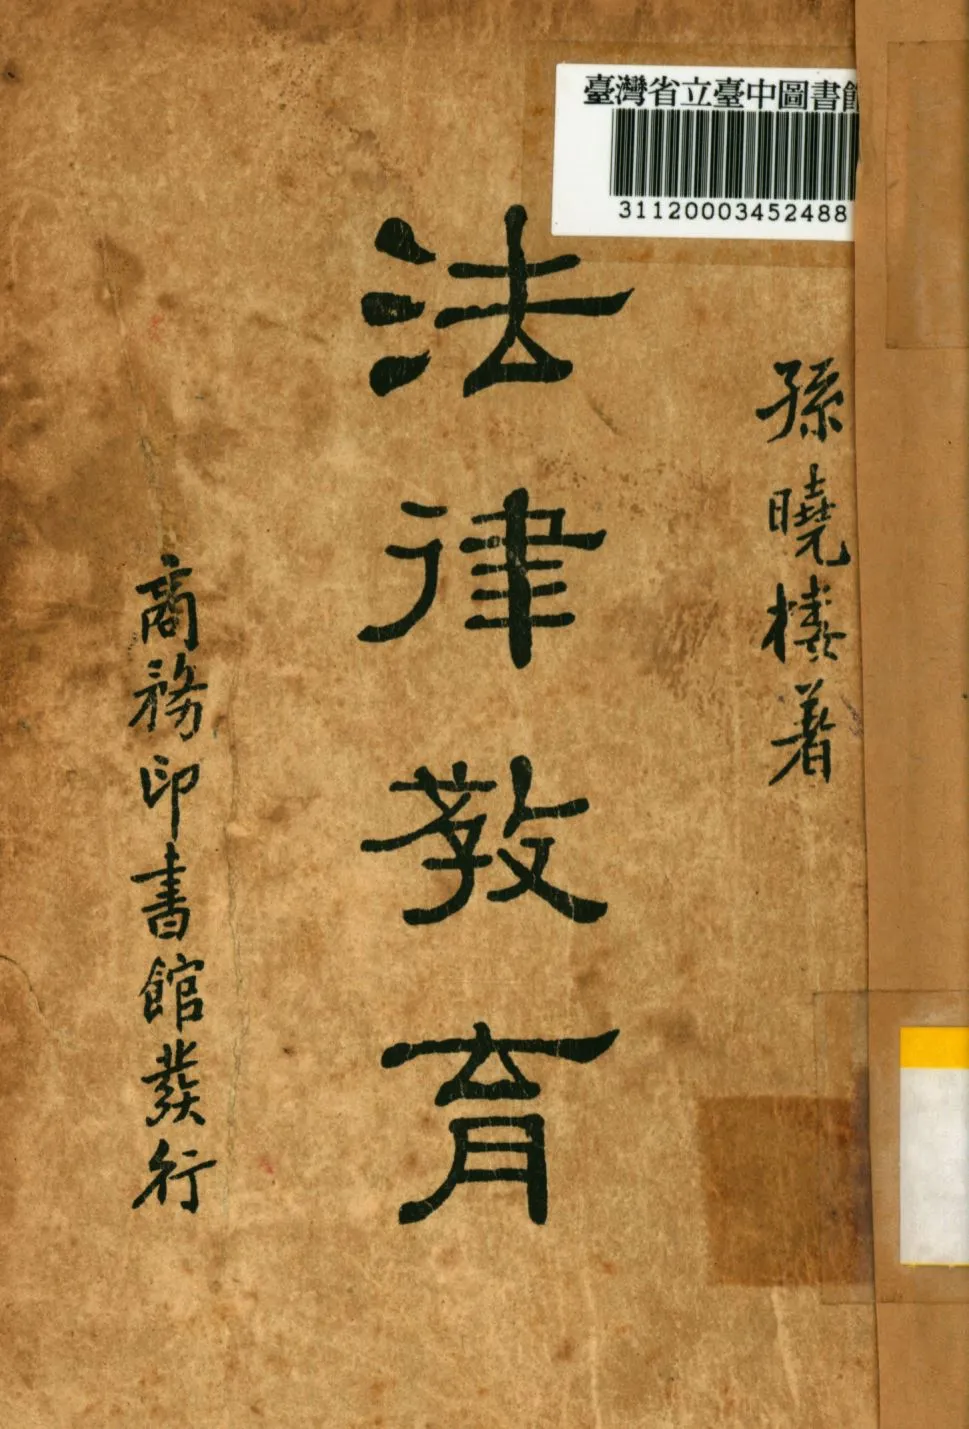 臺灣省立臺中圖書館
31120003452488
孫曉樓著
法律教育
商務印書館發行